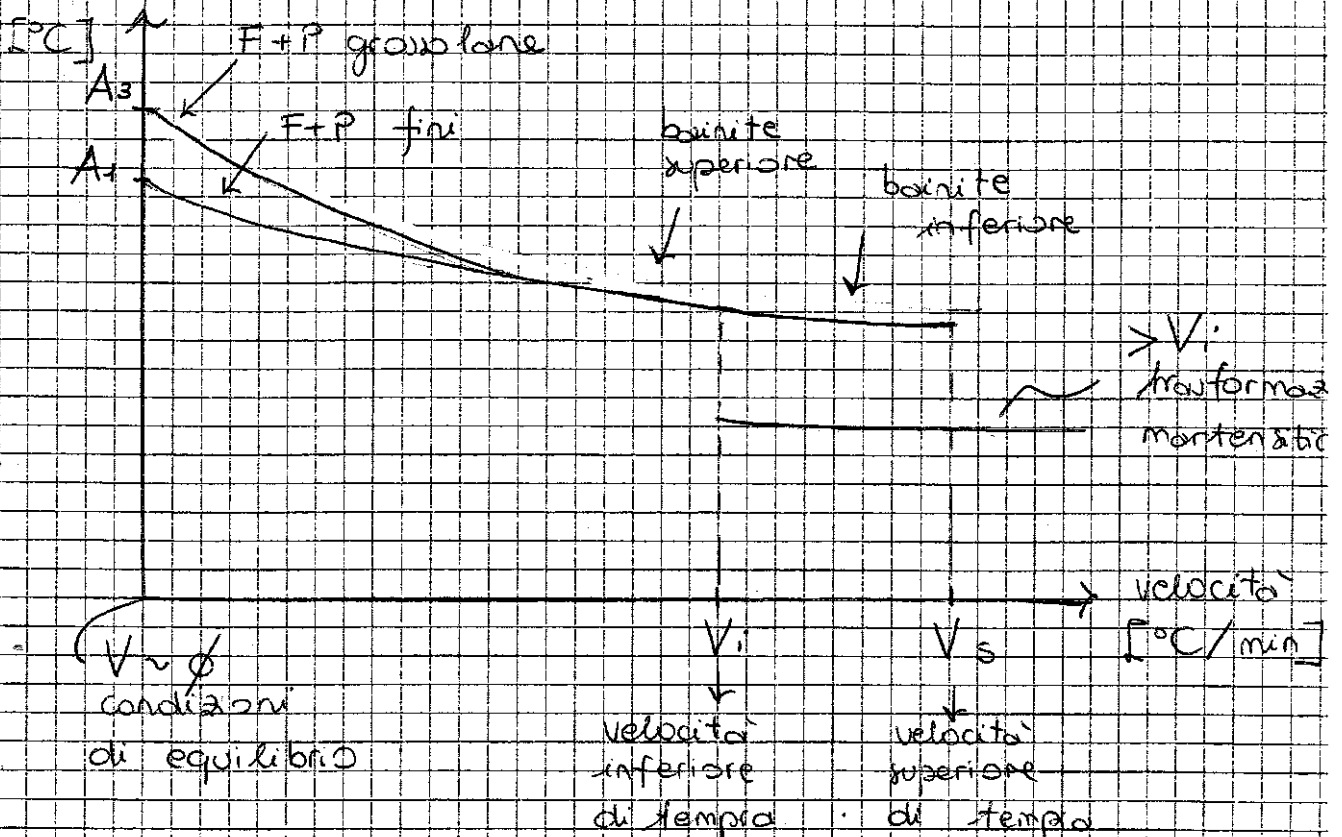 [°C]
F+P grossolane
A3
F+P fini
A1
bainite
superiore
bainite
inferiore
> Vi
trasformaz
martensitic
velocità
[°C/min]
Vi
Vs
V ~ ϕ
condizioni
di equilibrio
velocità
inferiore
di tempra
velocità
superiore
di tempra